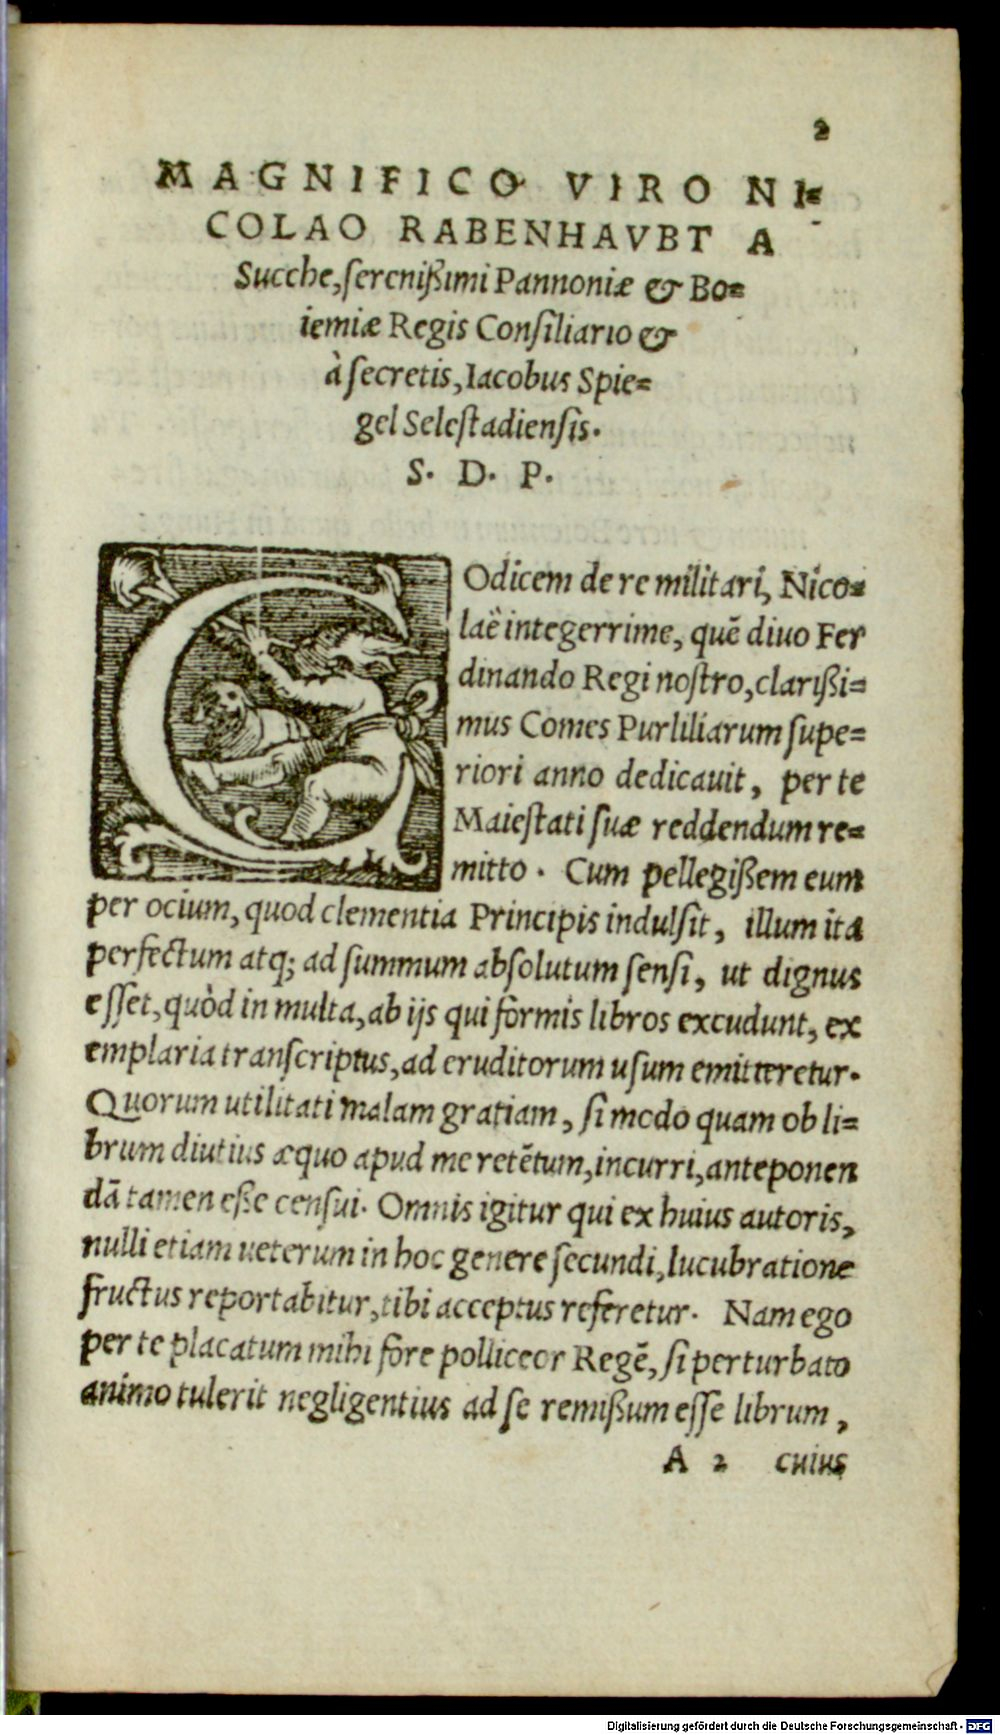 2
MAGNIFICO VIRO NI=
COLAO RABENHAVBT A
Sucche, ſereniſsimi Pannoniæ & Bo=
iemiæ Regis Conſiliario &
à ſecretis, Iacobus Spie=
gel Seleſtadienſis.
S. D. P.
COdicem de re militari, Nico=
laë integerrime, quē diuo Fer
dinando Regi noſtro, clariſsi=
mus Comes Purliliarum ſupe=
riori anno dedicauit, per te
Maieſtati ſuæ reddendum re=
mitto. Cum pellegiſsem eum
per ocium, quod clementia Principis indulſit, illum ita
perfectum atq; ad ſummum abſolutum ſenſi, ut dignus
eſſet, quòd in multa, ab ijs qui formis libros excudunt, ex
emplaria tranſcriptus, ad eruditorum uſum emitteretur.
Quorum utilitati malam gratiam, ſi modo quam ob li=
brum diutius æquo apud me retētum, incurri, anteponen
dā tamen eſse cenſui. Omnis igitur qui ex huius autoris,
nulli etiam ueterum in hoc genere ſecundi, lucubratione
fructus reportabitur, tibi acceptus referetur. Nam ego
per te placatum mihi fore polliceor Regē, ſi perturbato
animo tulerit negligentius ad ſe remiſsum eſſe librum,
A 2 cuius
Digitalisierung gefördert durch die Deutsche Forschungsgemeinschaft - DFG